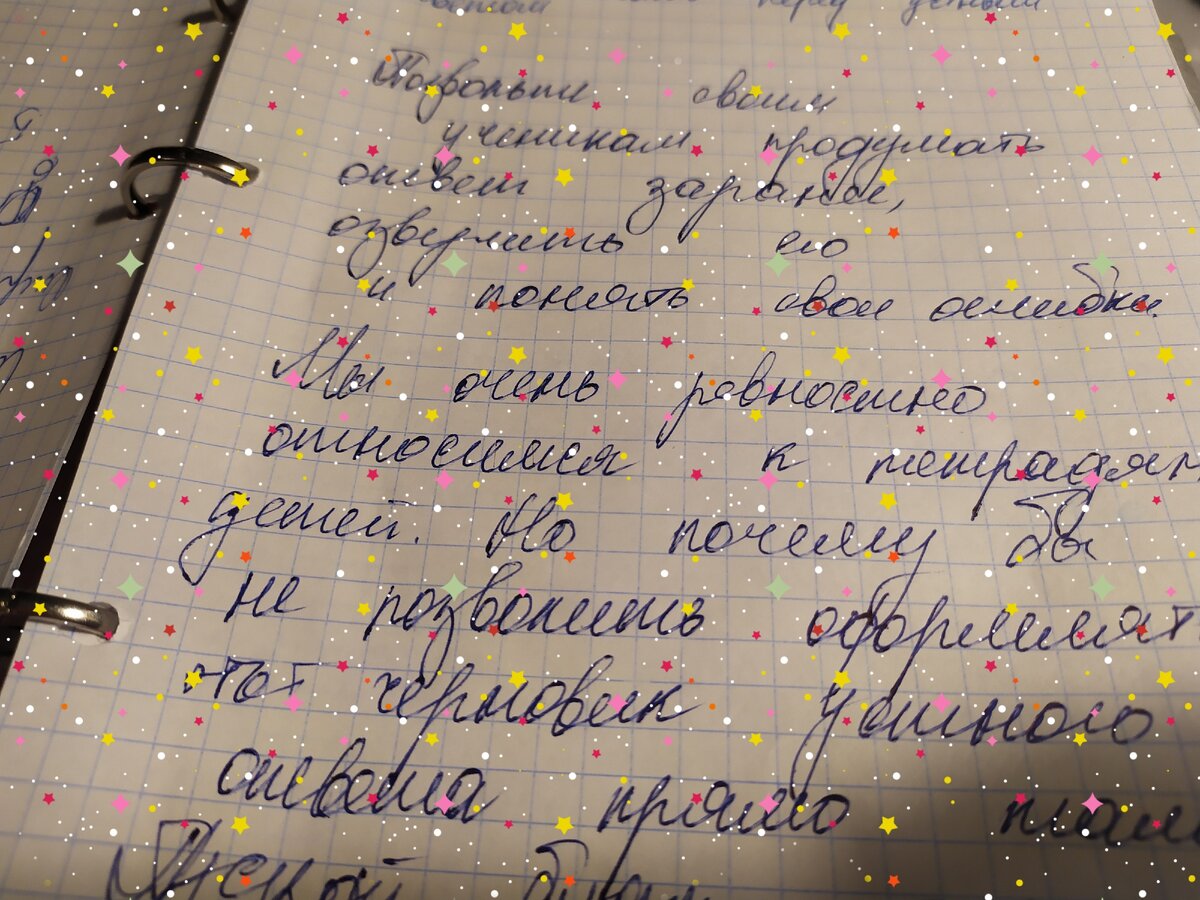 перед
Позвольте своим
ученикам продумать
ответ заранее,
озвучить его
и понять свои ошибки.
Мы очень ревностно
относимся к тетрадям
детей. Но почему бы
не позволить оформлят
этот черновик устного
ответа прямо там
Пускай